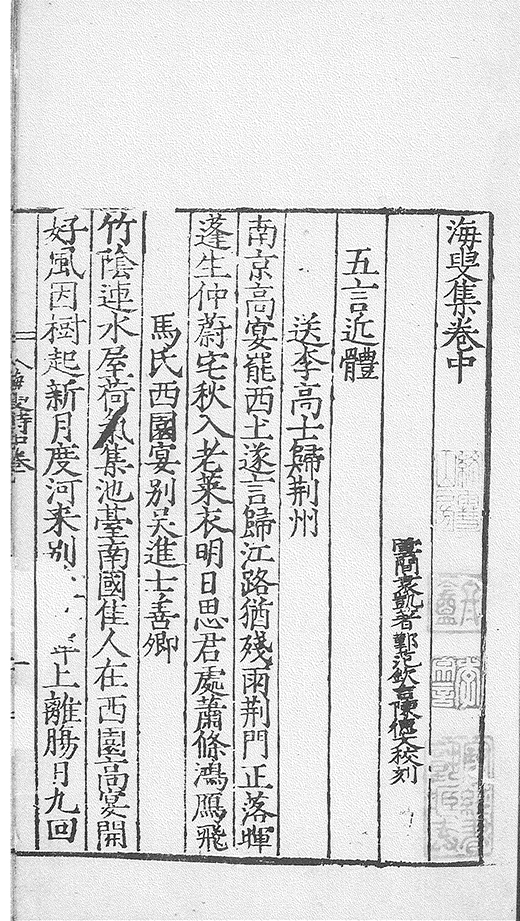 海叟集卷中
雲間袁凱著鄞范欽吉陳德文校刻
五言近體
送李高士歸荆州
南京高宴罷西上遂言歸江路猶殘雨荆門正落暉
蓬生仲蔚宅秋入老萊衣明日思君處蕭條鴻鴈飛
馬氏西園宴别吴進士善卿
竹陰連水屋荷氣集池臺南國佳人在西園高宴開
好風因樹起新月度河来别 上離腸日九回
海叟詩中卷